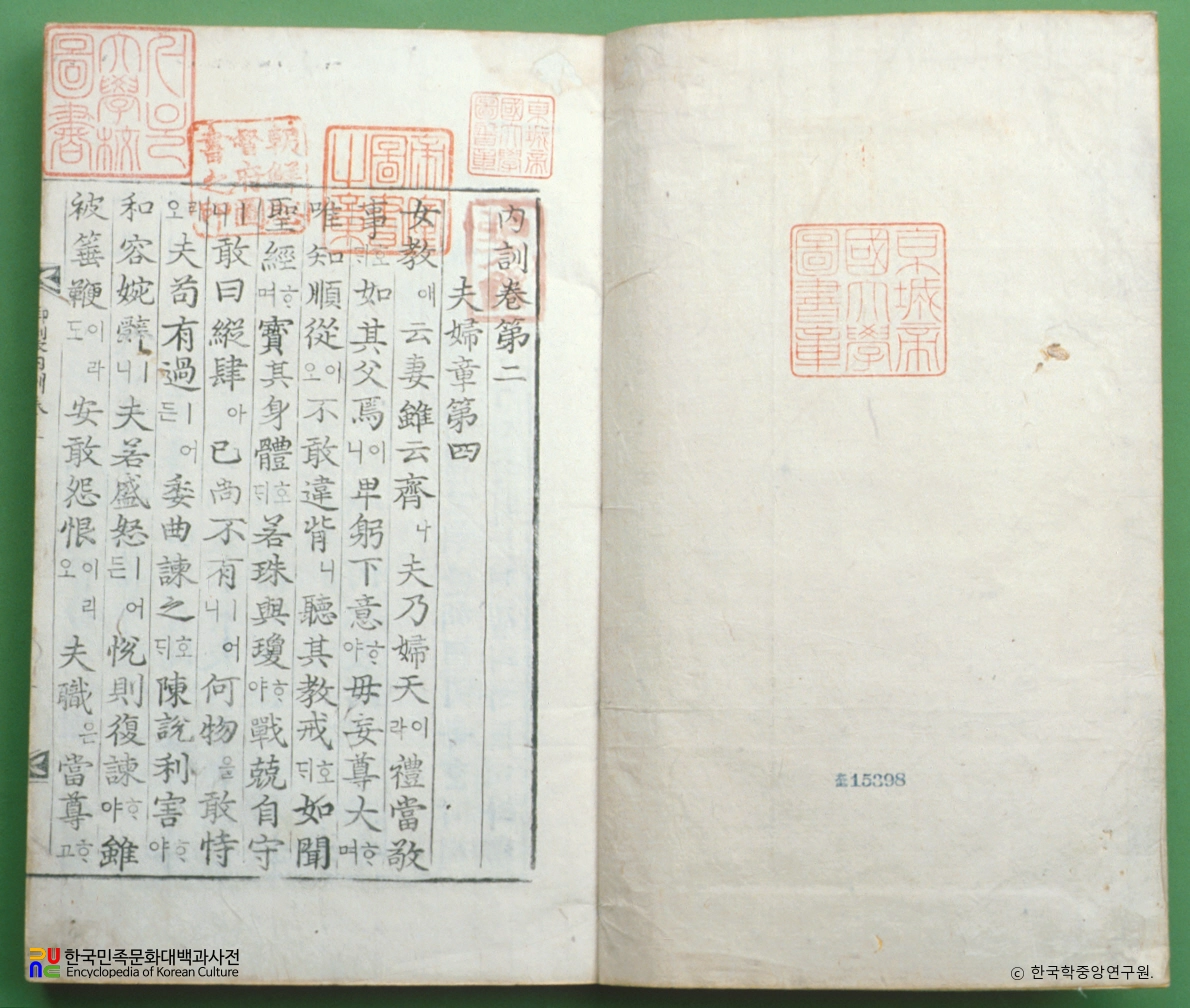 內訓卷第二
夫婦章第四
女教애 云妻雖云齊나 夫乃婦天이라 禮當敬
事호ᄃᆡ 如其父焉이니 卑躬下意ᄒᆞ야 毋妄尊大ᄒᆞ며
唯知順從이오 不敢違背니 聽其教戒호ᄃᆡ 如聞
聖經ᄒᆞ며 寶其身體호ᄃᆡ 若珠與瓊ᄒᆞ야 戰兢自守
ㅣ니 敢曰縱肆아 已尙不有ㅣ어니 何物을 敢恃
리오 夫苟有過ㅣ어든 委曲諫之호ᄃᆡ 陳說利害ᄒᆞ야
和容婉辭ㅣ니 夫若盛怒ㅣ어든 悅則復諫ᄒᆞ야 雖
被箠鞭이라도 安敢怨恨이리오 夫職은 當尊ᄒᆞ고
서울大學校圖書
朝鮮總督府圖書之印
帝室圖書之章
京城帝國大學圖書章
京城帝國大學圖書章
15398
한국민족문화대백과사전
Encyclopedia of Korean Culture
© 한국학중앙연구원.